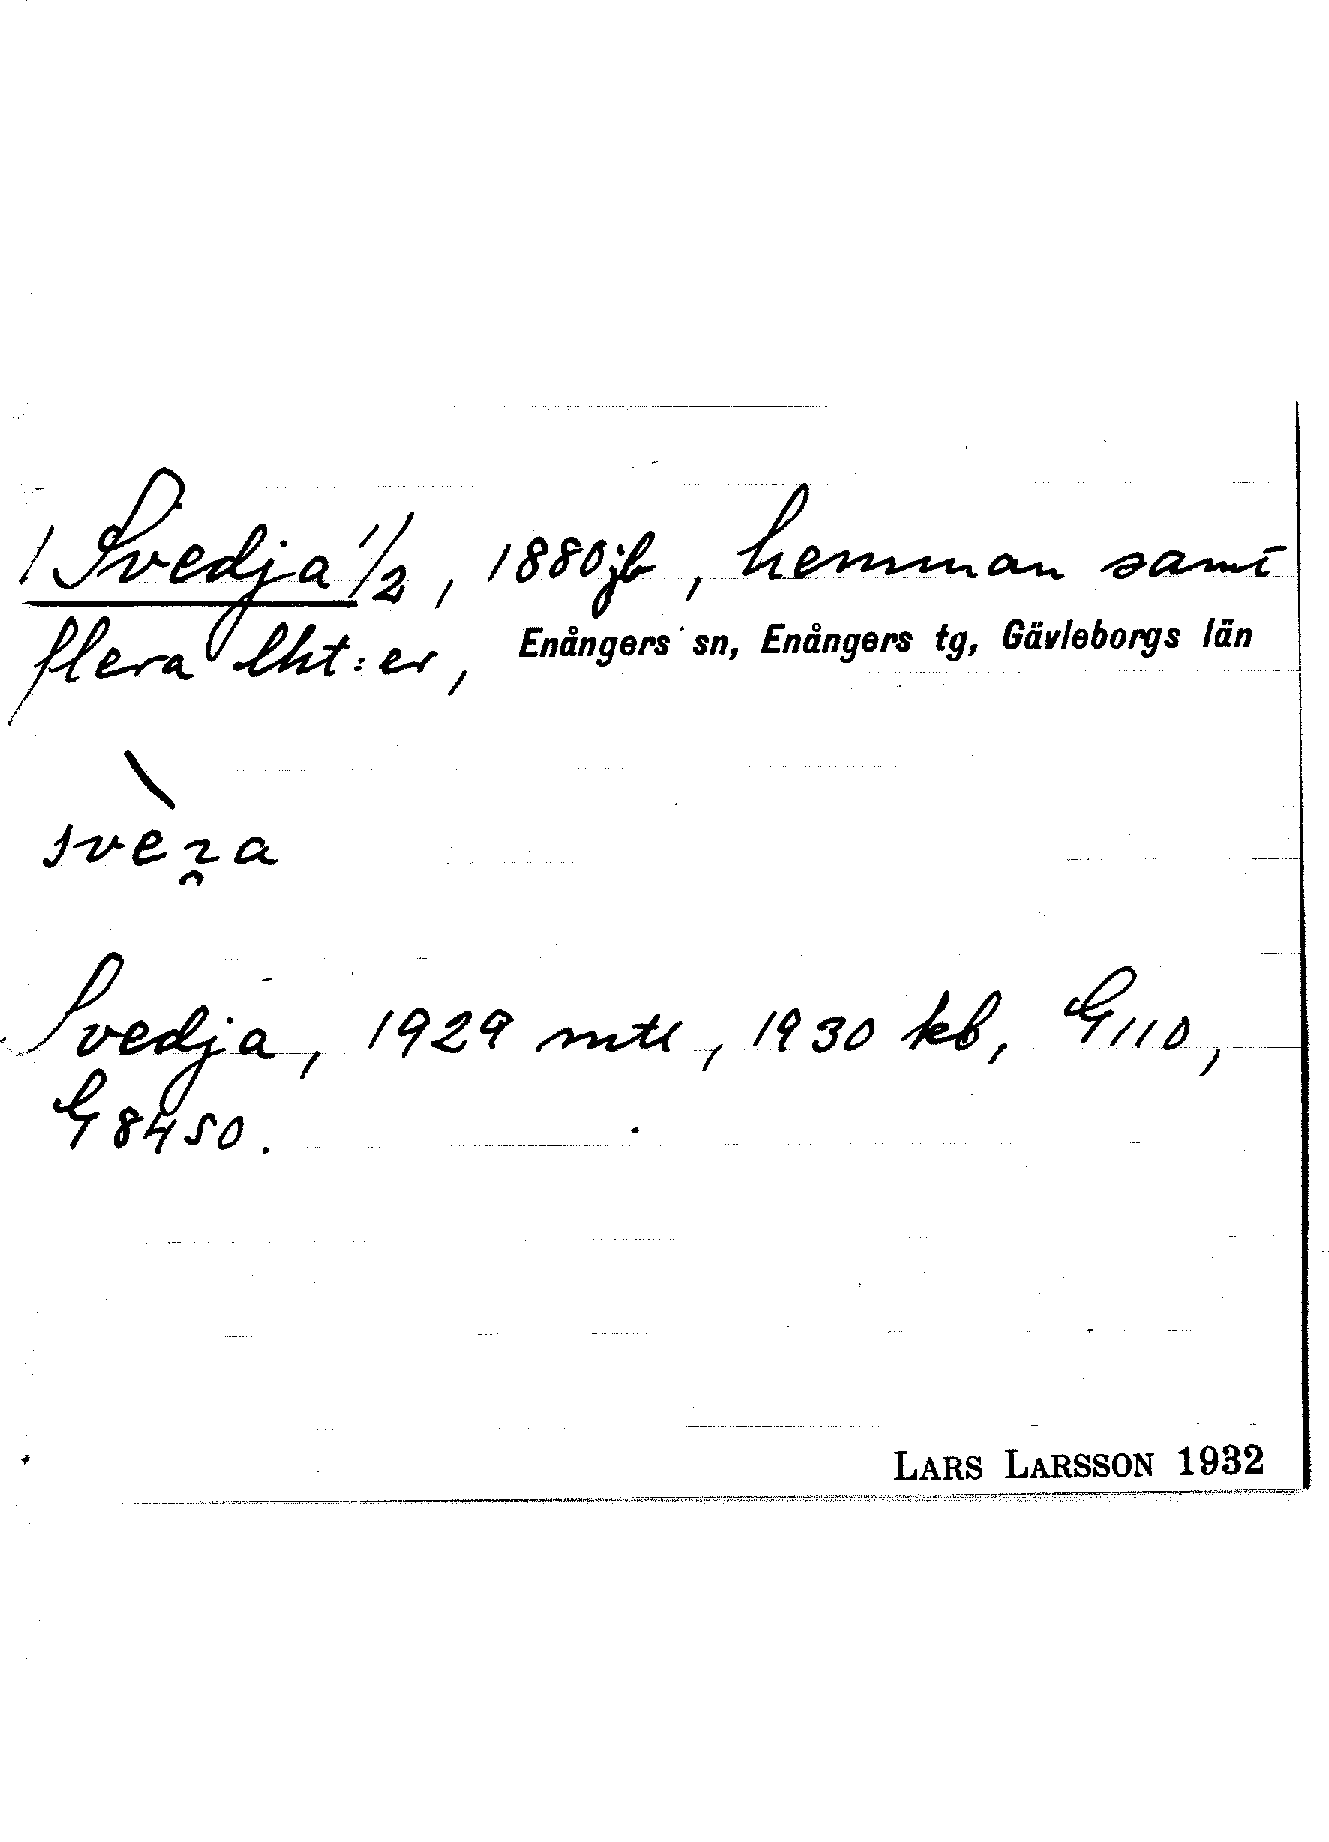 / Svedja 1/2, 1880 jb, hemman samt
flera lht:er, Enångers sn, Enångers tg, Gävleborgs län
Svedja, 1929 mtl, 1930 kb, G110,
G8450.
LARS LARSSON 1932